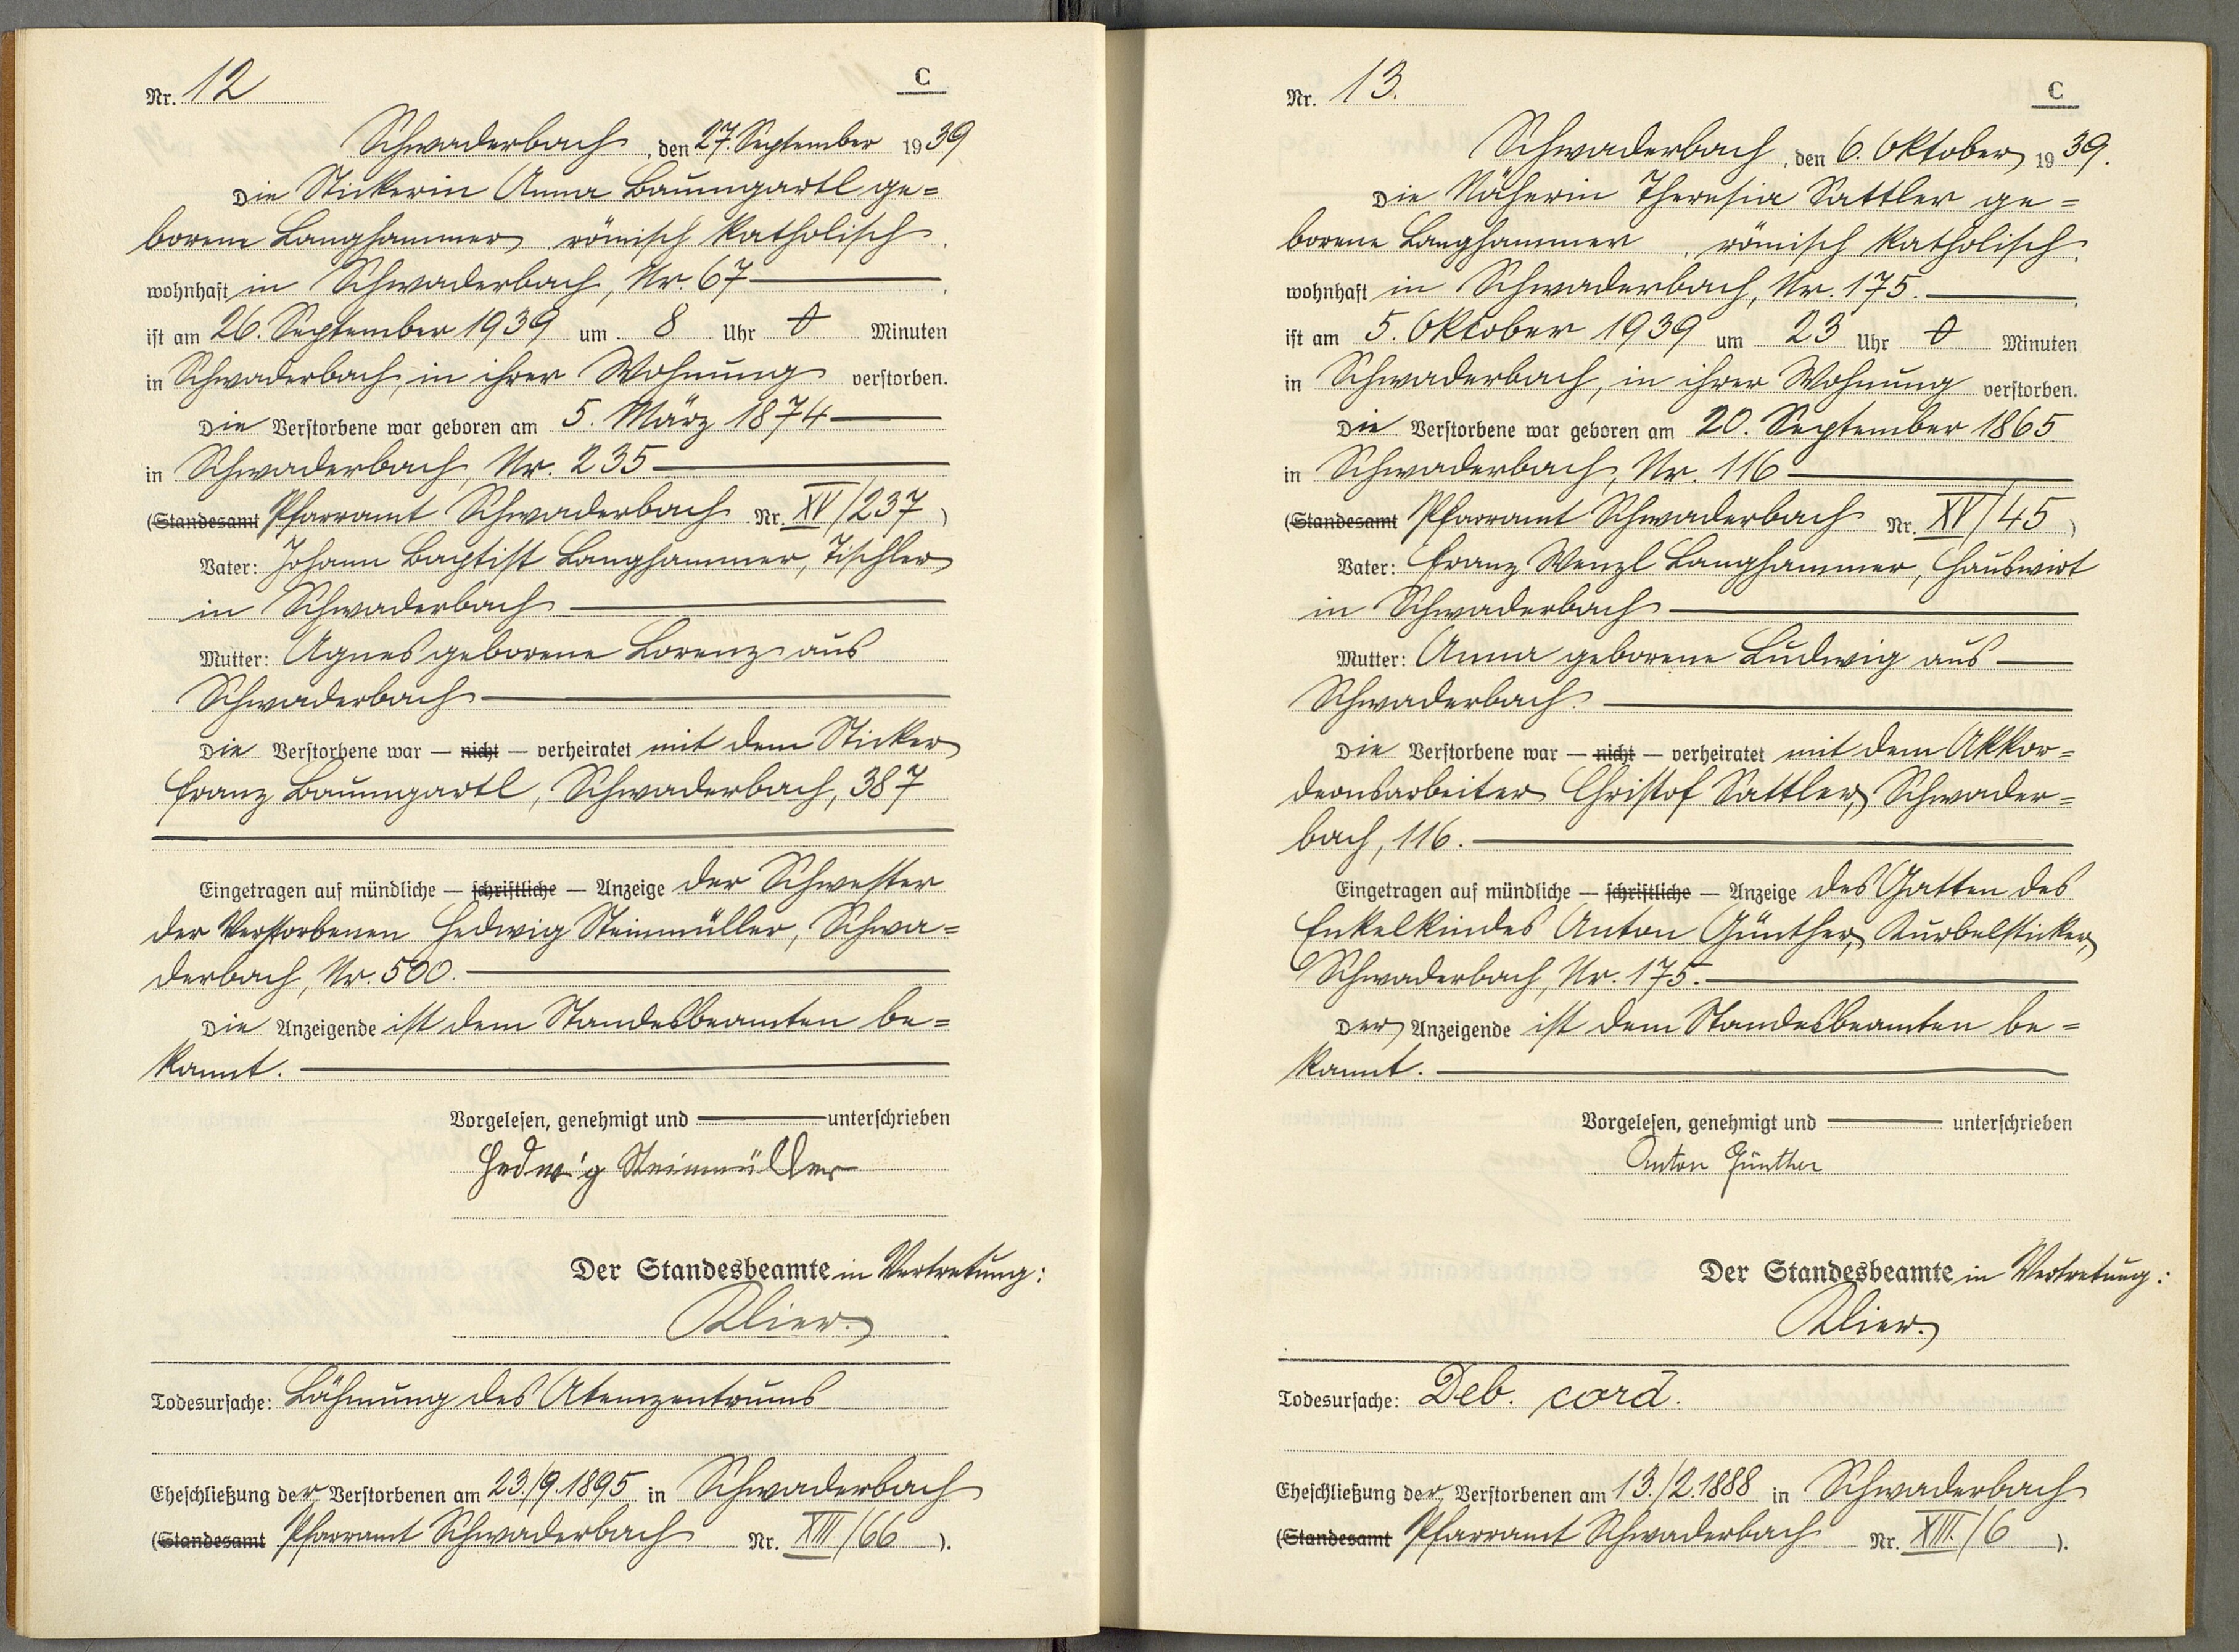 Nr. 12
C
Schwaderbach, den 27. September 1939
Die Stickerin Anna Baumgartl ge=
borene Langhammer, römisch katholisch,
wohnhaft in Schwaderbach, Nr. 67
ist am 26. September 1939 um 8 Uhr 0 Minuten
in Schwaderbach, in ihrer Wohnung verstorben.
Die Verstorbene war geboren am 5. März 1874
in Schwaderbach, Nr. 235
(Standesamt Pfarramt Schwaderbach Nr. XV/237)
Vater: Johann Baptist Langhammer, Tischler
in Schwaderbach
Mutter: Agnes geborene Lorenz aus
Schwaderbach
Die Verstorbene war — nicht — verheiratet mit dem Sticker
Franz Baumgartl, Schwaderbach, 387
Eingetragen auf mündliche — schriftliche — Anzeige der Schwester
der Verstorbenen Hedwig Steinmüller, Schwa=
derbach, Nr. 500.
Die Anzeigende ist dem Standesbeamten be=
kannt.
Vorgelesen, genehmigt und unterschrieben
Hedwig Steinmüller
Der Standesbeamte in Vertretung:
Klier.
Todesursache: Lähmung des Atemzentrums
Eheschließung der Verstorbenen am 23./9.1895 in Schwaderbach
(Standesamt Pfarramt Schwaderbach Nr. XIII/66).
Nr. 13.
C
Schwaderbach, den 6. Oktober 1939.
Die Näherin Theresia Sattler ge=
borene Langhammer, römisch katholisch,
wohnhaft in Schwaderbach, Nr. 175.
ist am 5. Oktober 1939 um 23 Uhr 0 Minuten
in Schwaderbach, in ihrer Wohnung verstorben.
Die Verstorbene war geboren am 20. September 1865
in Schwaderbach, Nr. 116
(Standesamt Pfarramt Schwaderbach Nr. XV/45)
Vater: Franz Wenzl Langhammer, Hauswirt
in Schwaderbach
Mutter: Anna geborene Ludwig aus
Schwaderbach.
Die Verstorbene war — nicht — verheiratet mit dem Akkor=
deonsarbeiter Christof Sattler, Schwader=
bach, 116.
Eingetragen auf mündliche — schriftliche — Anzeige des Gatten des
Enkelkindes Anton Günther, Kurbelsticker,
Schwaderbach, Nr. 175.
Der Anzeigende ist dem Standesbeamten be=
kannt.
Vorgelesen, genehmigt und unterschrieben
Anton Günther
Der Standesbeamte in Vertretung:
Klier.
Todesursache: Deb. cord.
Eheschließung der Verstorbenen am 13./2.1888 in Schwaderbach
(Standesamt Pfarramt Schwaderbach Nr. XIII./6).